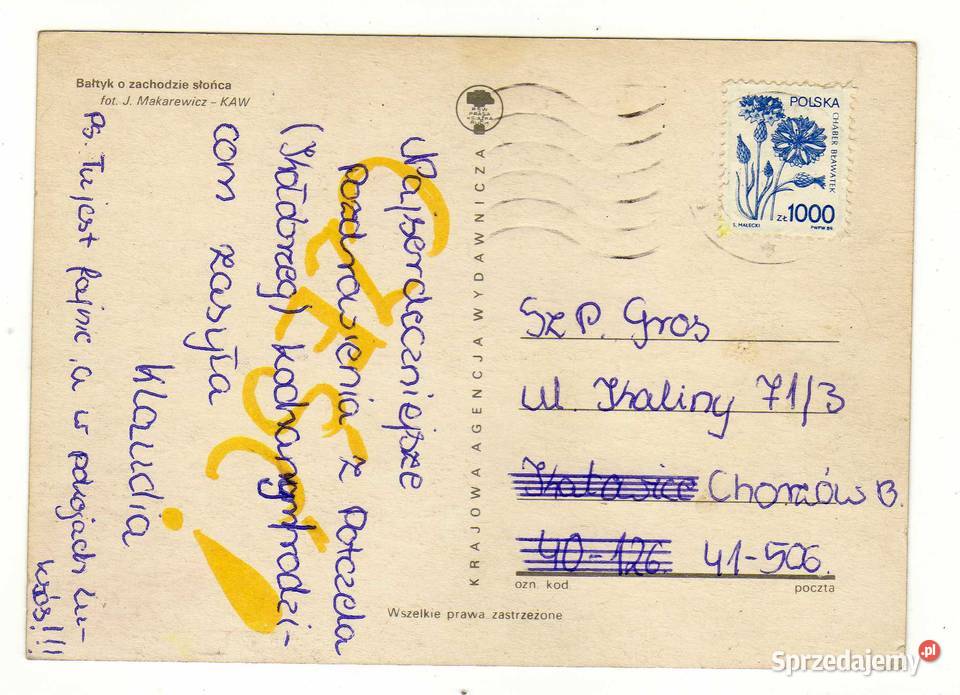 Bałtyk o zachodzie słońca
fot. J. Makarewicz – KAW
CZEŚĆ!
Najserdeczniejsze
pozdrowienia z Potczela
(Kołobrzeg) kochanym rodzi-
com zasyła
Klaudia
Ps. Tu jest fajnie, a w pokojach lu-
ksus!!!
RSW
PRASA
KSIĄŻKA
RUCH
KRAJOWA AGENCJA WYDAWNICZA
POLSKA
CHABER BŁAWATEK
ZŁ 1000
S. MAŁECKI
PWPW 89
Sz P. Gros
ul. Kaliny 71/3
Katowice Chorzów B.
40-126. 41-506.
ozn. kod.
poczta
Wszelkie prawa zastrzeżone
Sprzedajemy.pl